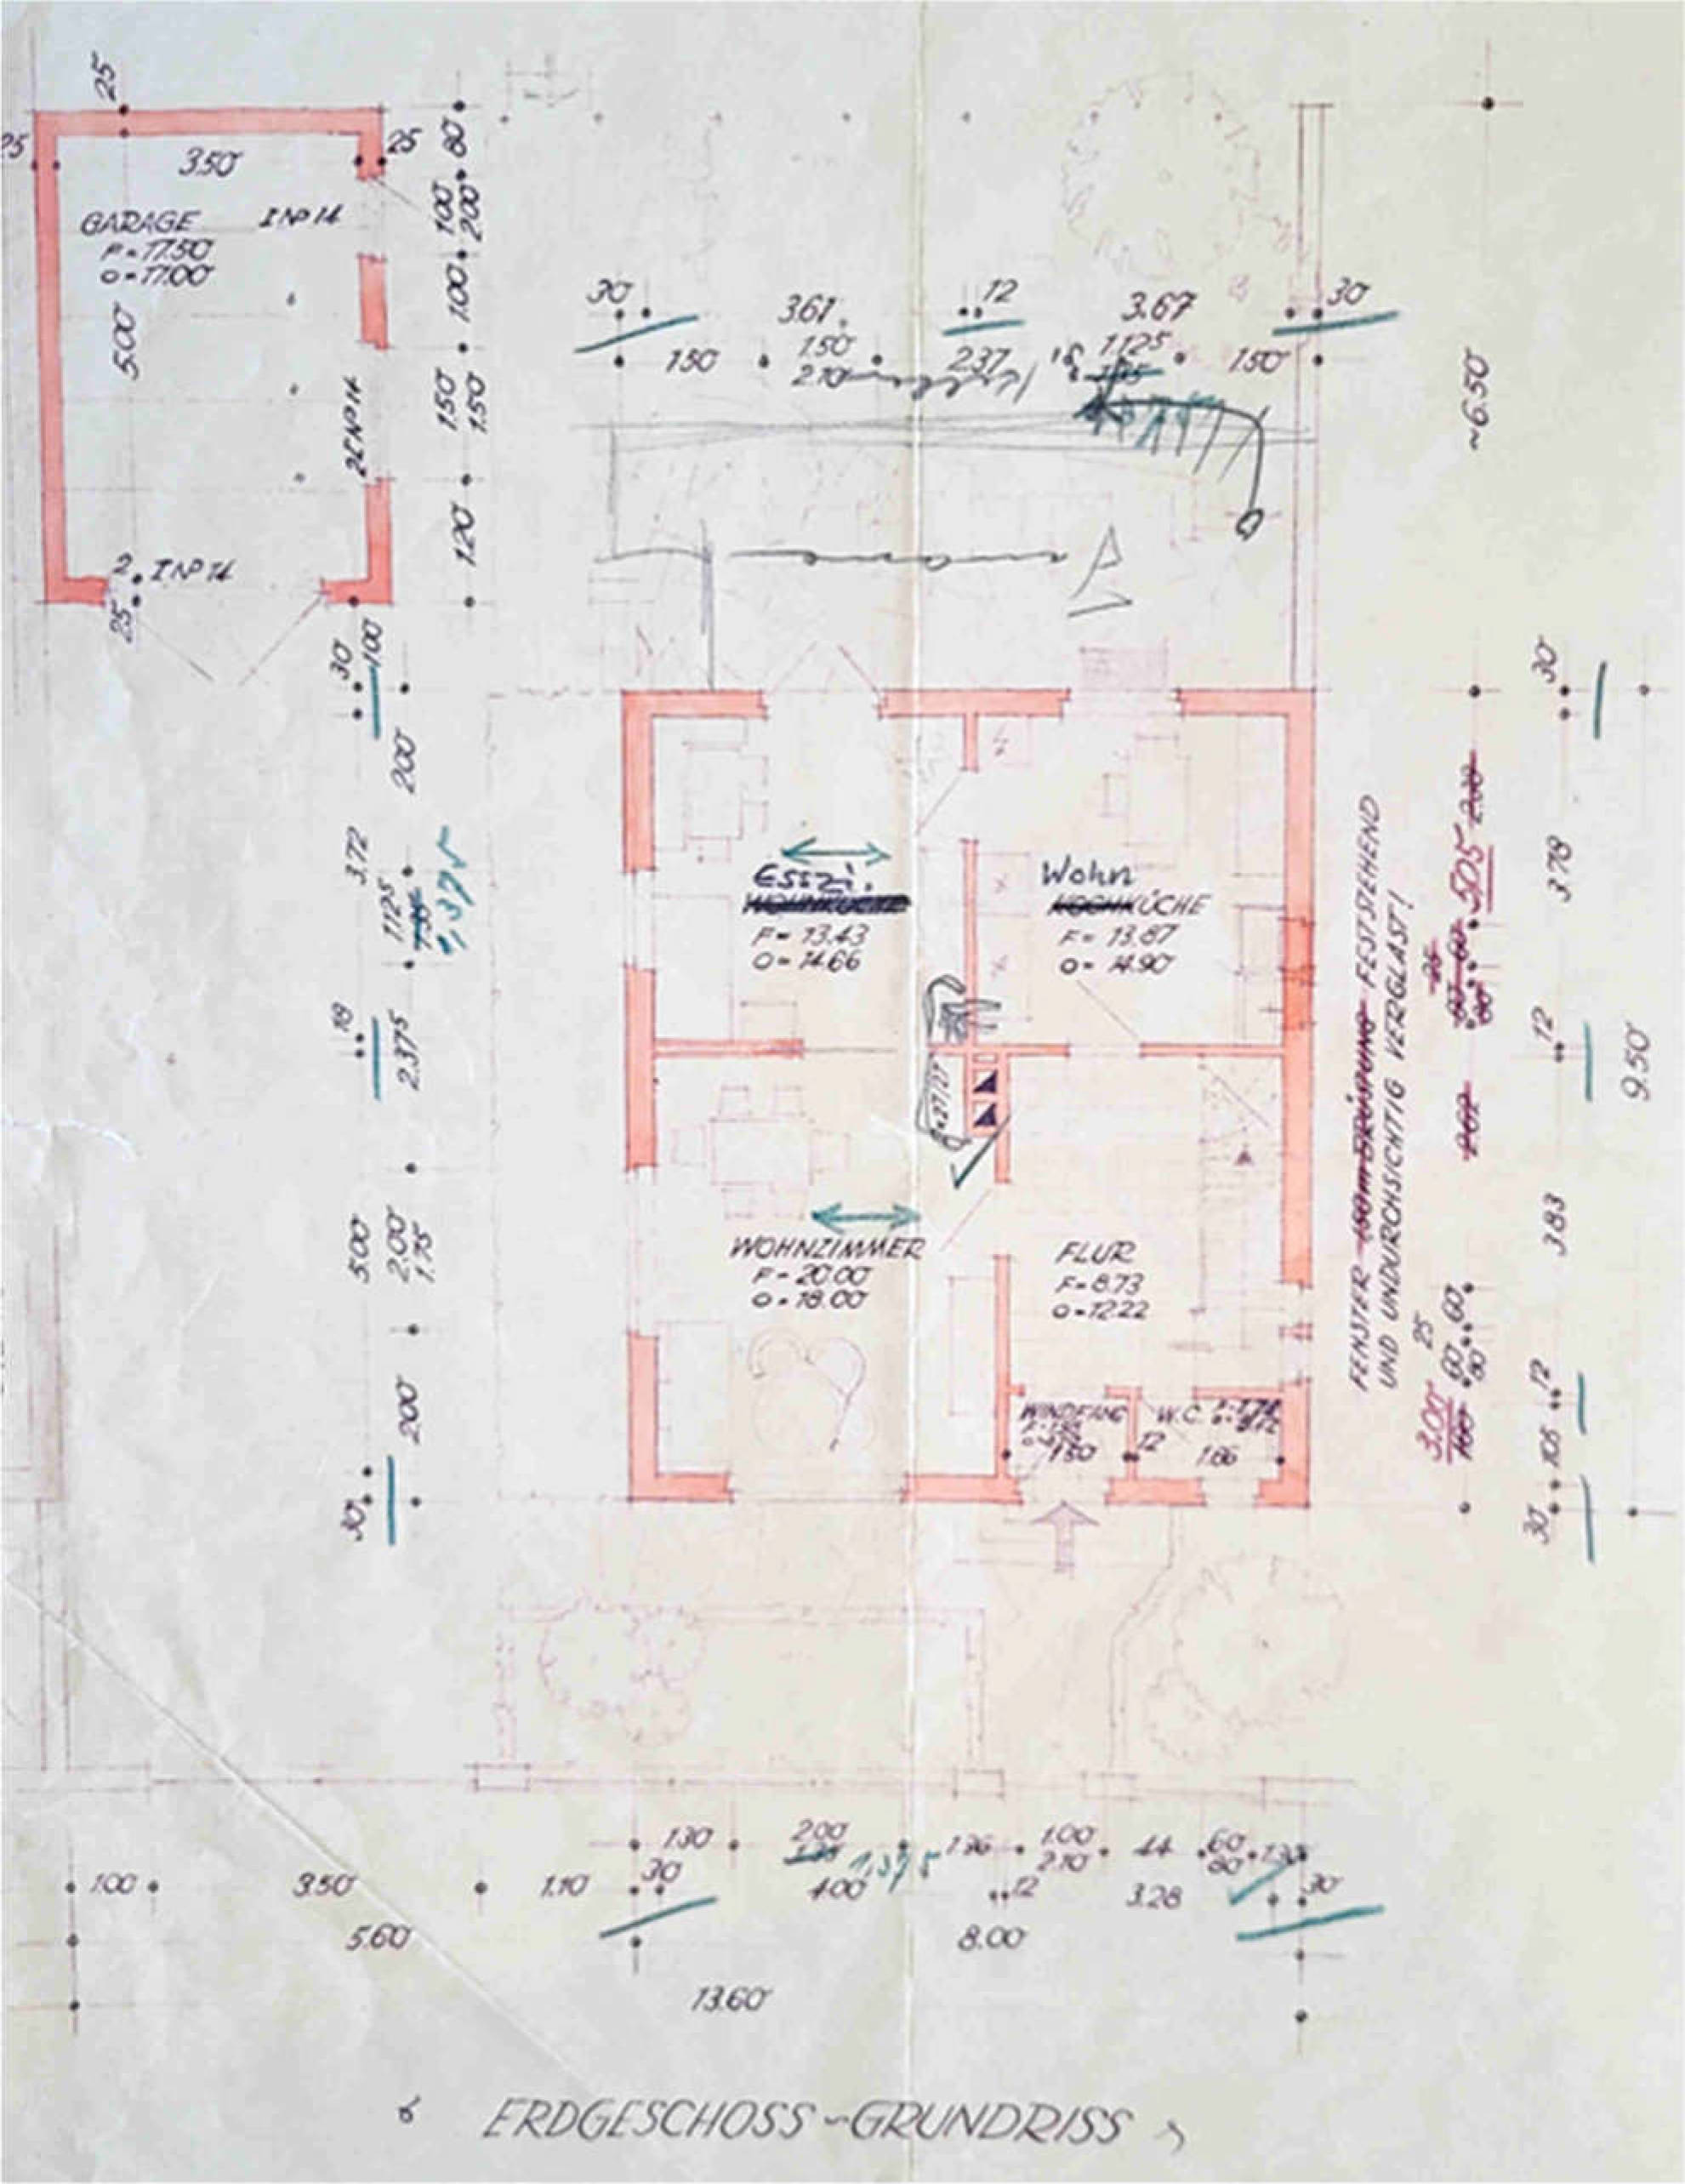 25
25
3.50
25
GARAGE
F = 17.50
O = 17.00
INP 14
5.00
2 INP 14
INP 14
2
25
80
100
200
100
150
150
120
30
3.61
12
3.67
30
150
150
210
237
1.125
150
~6.50
30
100
200
3.72
1.125
1,375
18
2.375
5.00
2.00
1.75
200
30
Esszi.
WOHNKÜCHE
F = 13.43
O = 14.66
Wohn
KOCHKÜCHE
F = 13.87
O = 14.90
27/27
WOHNZIMMER
F = 20.00
O = 18.00
FLUR
F = 8.73
O = 12.22
WINDFANG
1.50
12
W.C.
1.66
FENSTER FESTSTEHEND
UND UNDURCHSICHTIG VERGLAST!
200
505
25
60
3.00
25
60
60
80
30
3.78
12
9.50
3.83
12
30
130
200
1,375
1.00
2.10
44
60
80
1.00
3.50
1.10
30
4.00
12
3.28
30
5.60
8.00
13.60
ERDGESCHOSS - GRUNDRISS